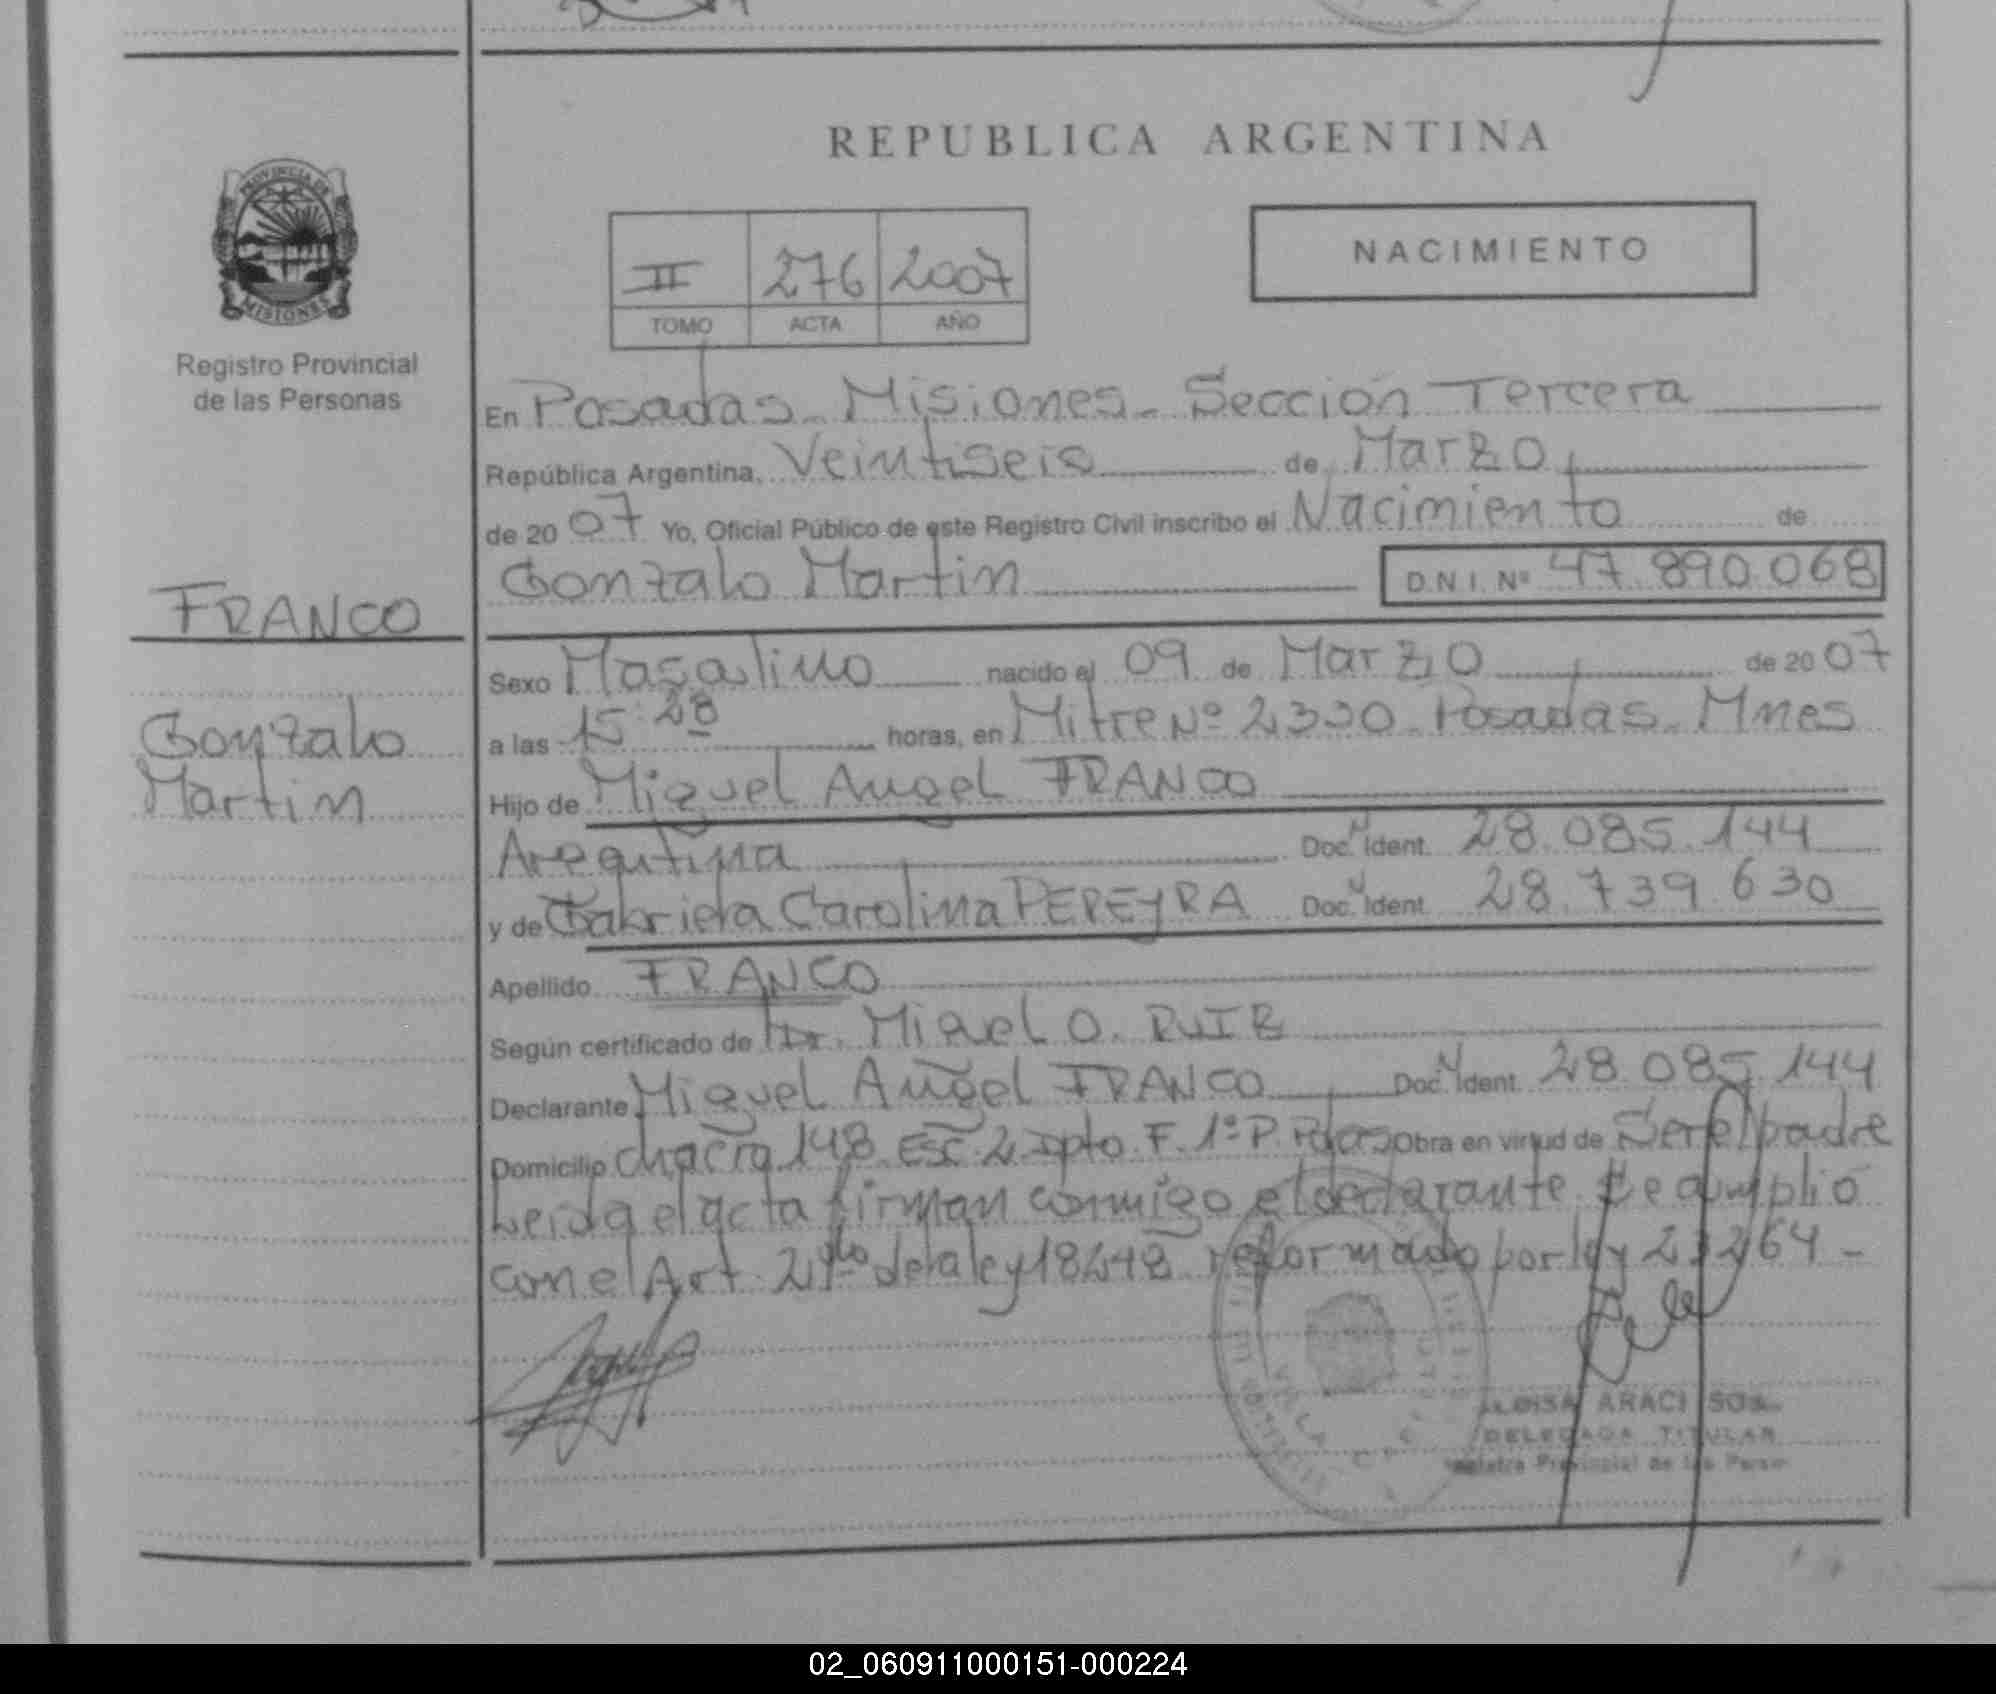 REPUBLICA ARGENTINA
PROVINCIA DE
MISIONES
Registro Provincial
de las Personas
II 276 2007
TOMO ACTA AÑO
NACIMIENTO
En Posadas - Misiones - Sección Tercera
República Argentina, Veintiseis de Marzo
de 20 07 Yo, Oficial Público de este Registro Civil inscribo el Nacimiento de
Gonzalo Martin D.N.I. Nº 47.890.068
FRANCO
Gonzalo
Martin
Sexo Masculino nacido el 09 de Marzo de 20 07
a las 15:28 horas, en Mitre Nº 2330 - Posadas - Mnes
Hijo de Miguel Angel FRANCO
Argentina Doc. N Ident. 28.085.144
y de Gabriela Carolina PEREYRA Doc. N Ident. 28.739.630
Apellido FRANCO
Según certificado de Dr. Miguel O. RUIZ
Declarante Miguel Angel FRANCO Doc. N Ident. 28.085.144
Domicilio chacra 148 Esc. 2 Dpto. F. 1º P. Pdas Obra en virtud de Ser el padre
Leida el acta firman conmigo el declarante. Se cumplió
con el Art. 2do de la ley 18248 reformado por ley 23264 -
ARACI SOSA
DELEGADA TITULAR
Registro Provincial de las Person
02_060911000151-000224